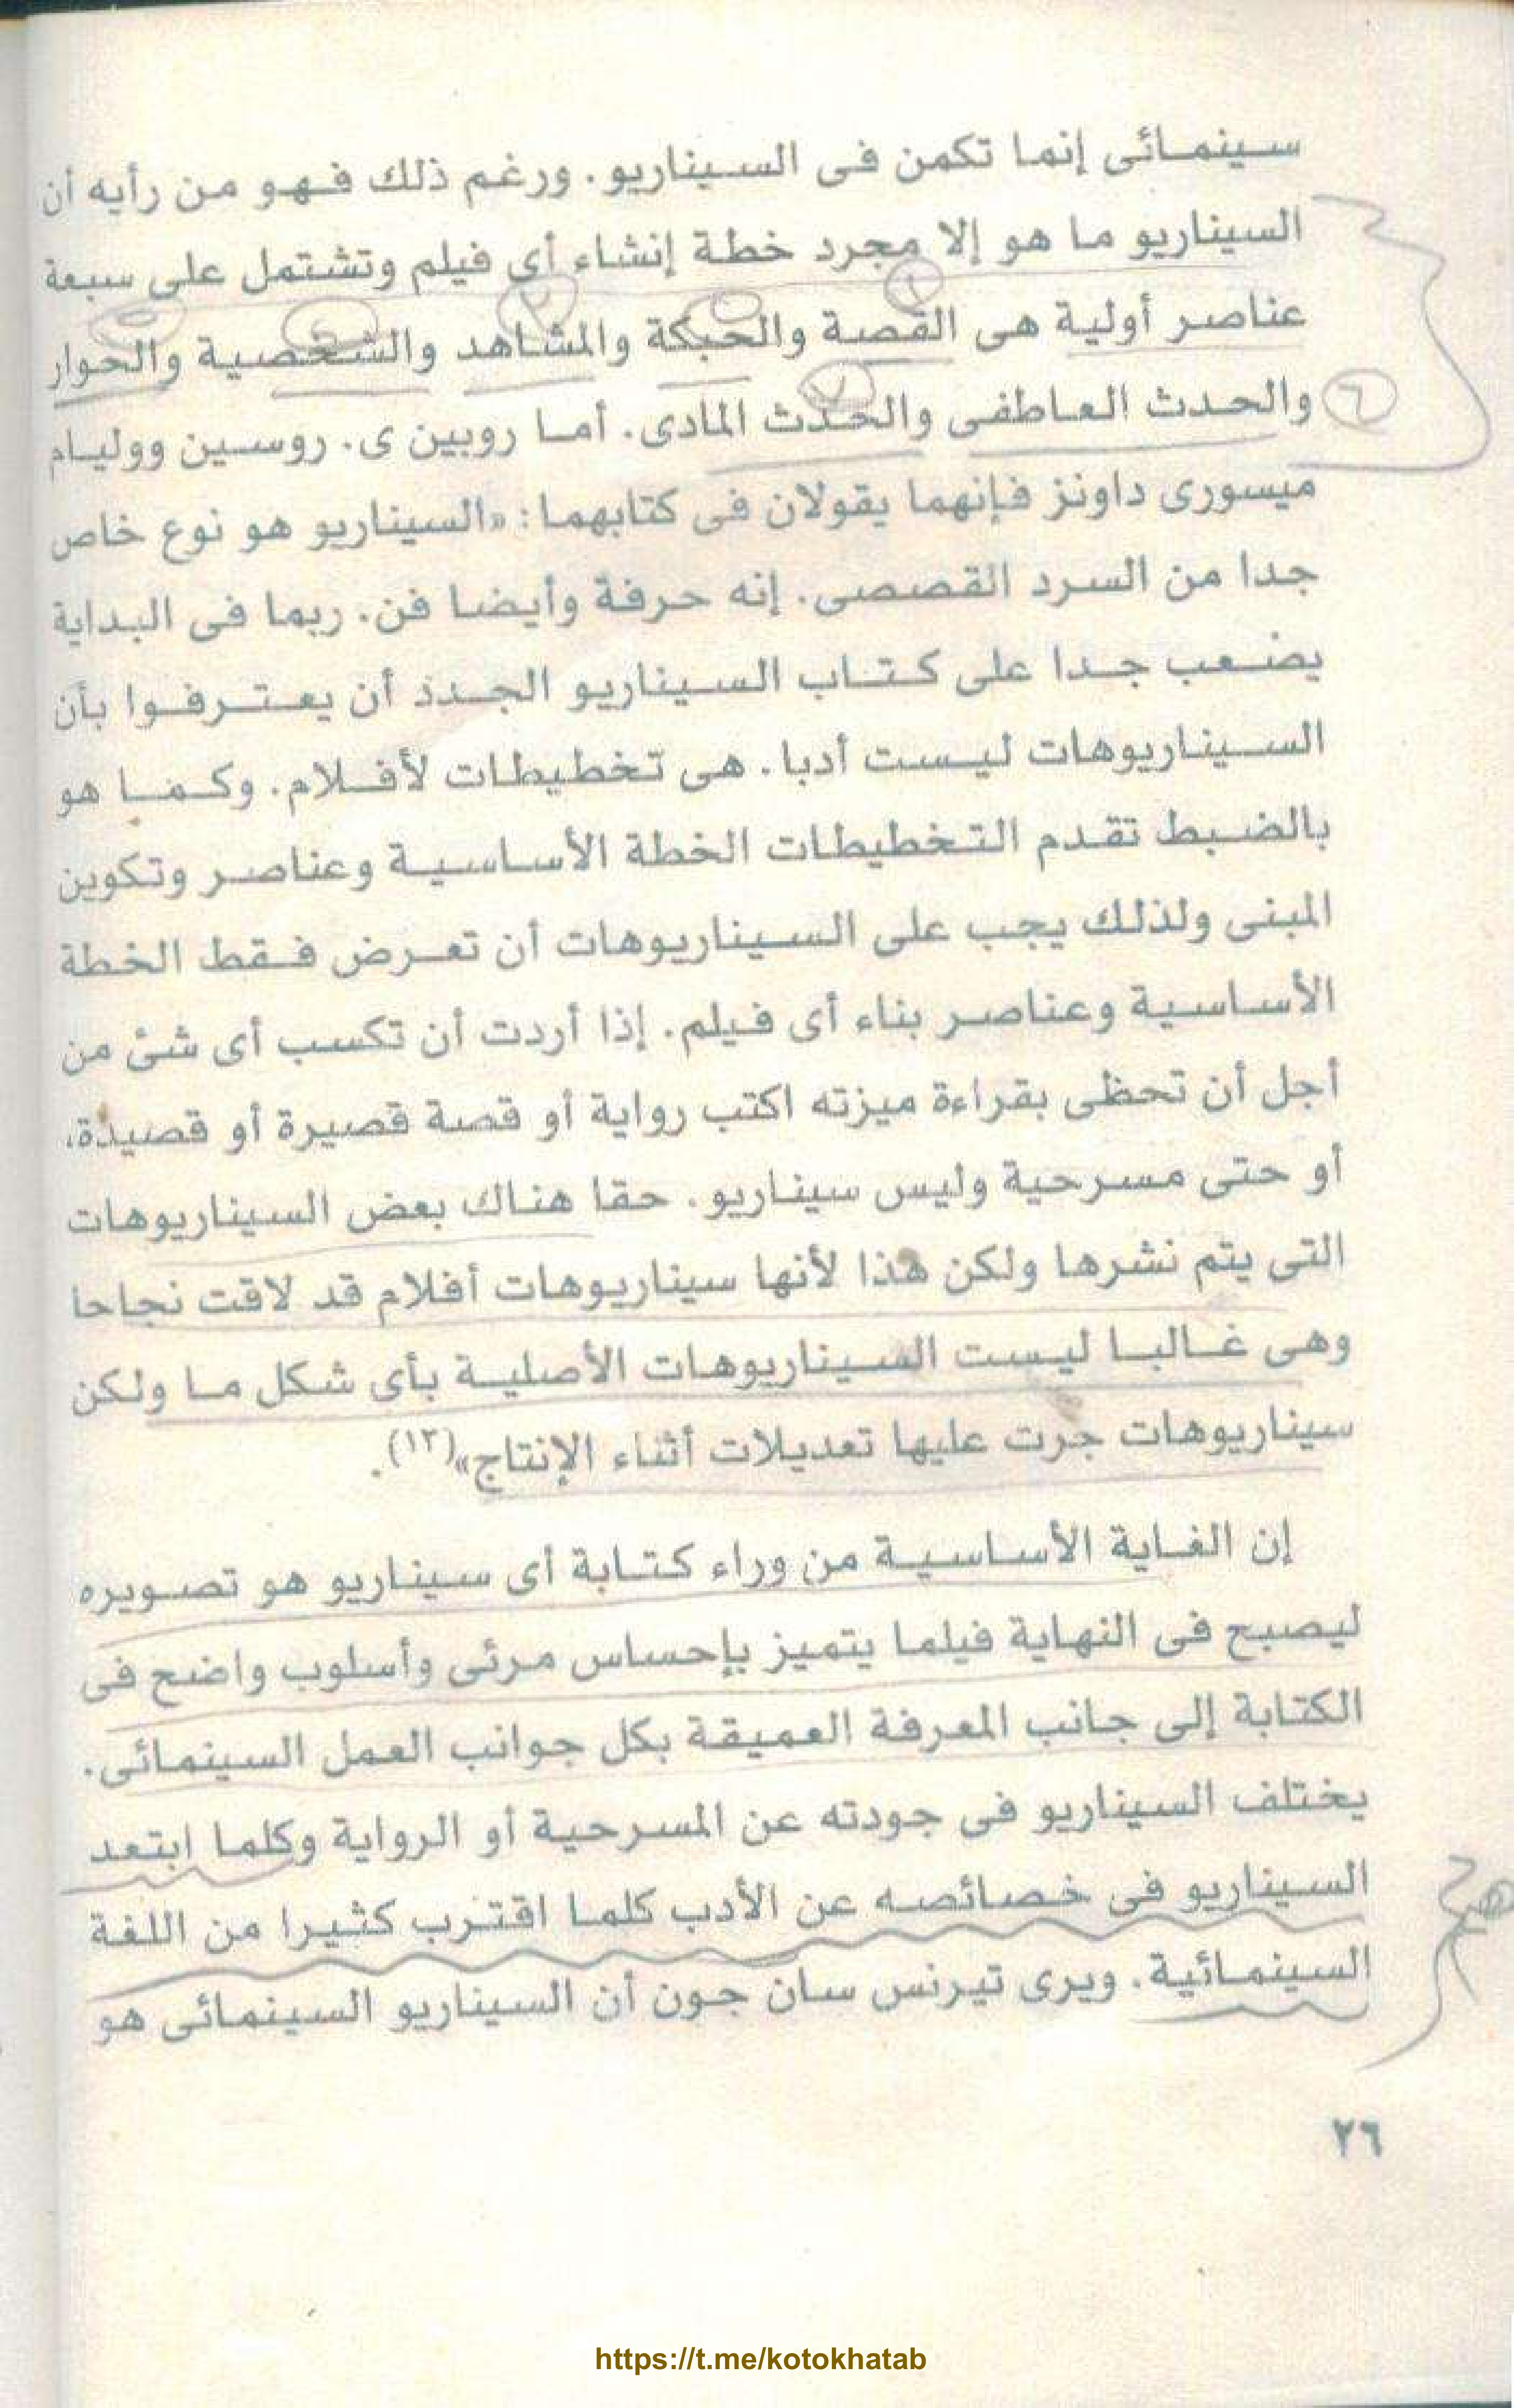 سينمائى إنما تكمن فى السيناريو. ورغم ذلك فهو من رأيه أن
السيناريو ما هو إلا مجرد خطة إنشاء أى فيلم وتشتمل على سبعة
عناصر أولية هى القصة والحبكة والمشاهد والشخصية والحوار
والحدث العاطفى والحدث المادى. أما روبين ى. روسين ووليام
ميسورى داونز فإنهما يقولان فى كتابهما: «السيناريو هو نوع خاص
جدا من السرد القصصى. إنه حرفة وأيضا فن. ربما فى البداية
يصعب جدا على كتاب السيناريو الجدد أن يعترفوا بأن
السيناريوهات ليست أدبا. هى تخطيطات لأفلام. وكما هو
بالضبط تقدم التخطيطات الخطة الأساسية وعناصر وتكوين
المبنى ولذلك يجب على السيناريوهات أن تعرض فقط الخطة
الأساسية وعناصر بناء أى فيلم. إذا أردت أن تكسب أى شئ من
أجل أن تحظى بقراءة ميزته اكتب رواية أو قصة قصيرة أو قصيدة،
أو حتى مسرحية وليس سيناريو. حقا هناك بعض السيناريوهات
التى يتم نشرها ولكن هذا لأنها سيناريوهات أفلام قد لاقت نجاحا
وهى غالبا ليست السيناريوهات الأصلية بأى شكل ما ولكن
سيناريوهات جرت عليها تعديلات أثناء الإنتاج»(١٣).
إن الغاية الأساسية من وراء كتابة أى سيناريو هو تصويره
ليصبح فى النهاية فيلما يتميز بإحساس مرئى وأسلوب واضح فى
الكتابة إلى جانب المعرفة العميقة بكل جوانب العمل السينمائى.
يختلف السيناريو فى جودته عن المسرحية أو الرواية وكلما ابتعد
السيناريو فى خصائصه عن الأدب كلما اقترب كثيرا من اللغة
السينمائية. ويرى تيرنس سان جون أن السيناريو السينمائى هو
٢٦
https://t.me/kotokhatab